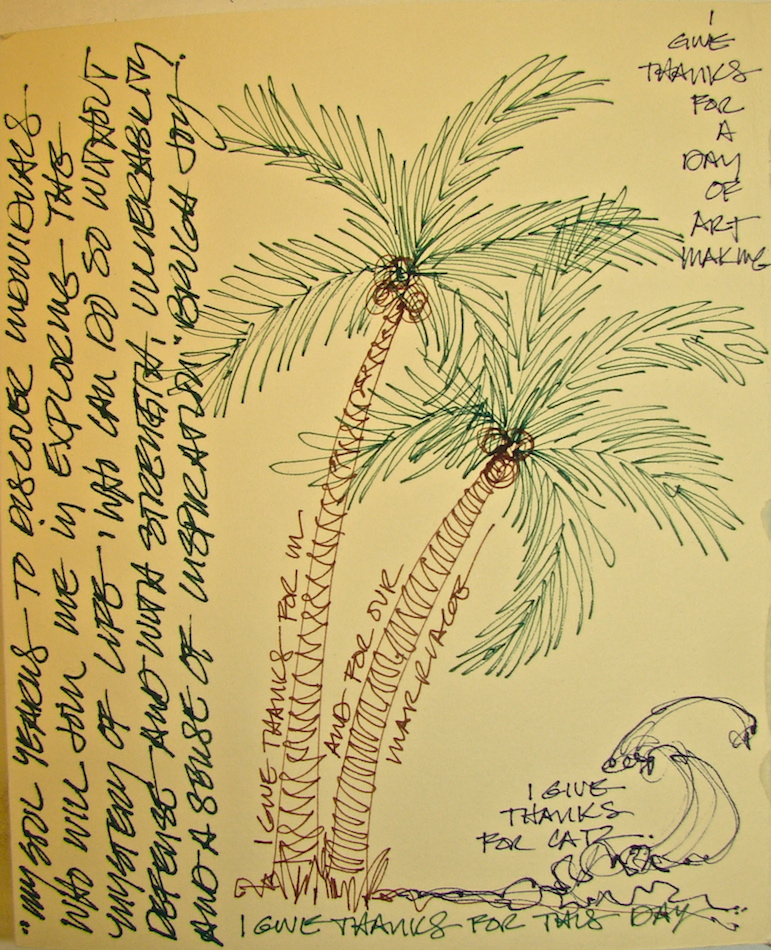 "MY SOUL YEARNS TO DISCOVER INDIVIDUALS
WHO WILL JOIN ME IN EXPLORING THE
MYSTERY OF LIFE, WHO CAN DO SO WITHOUT
DEFENSE AND WITH STRENGTH, VULNERABILITY
AND A SENSE OF INSPIRATION" BRUGH JOY.
I
GIVE
THANKS
FOR
A
DAY
OF
ART
MAKING
I GIVE THANKS FOR
AND FOR OUR
MARRIAGE
I GIVE
THANKS
FOR
I GIVE THANKS FOR THIS DAY